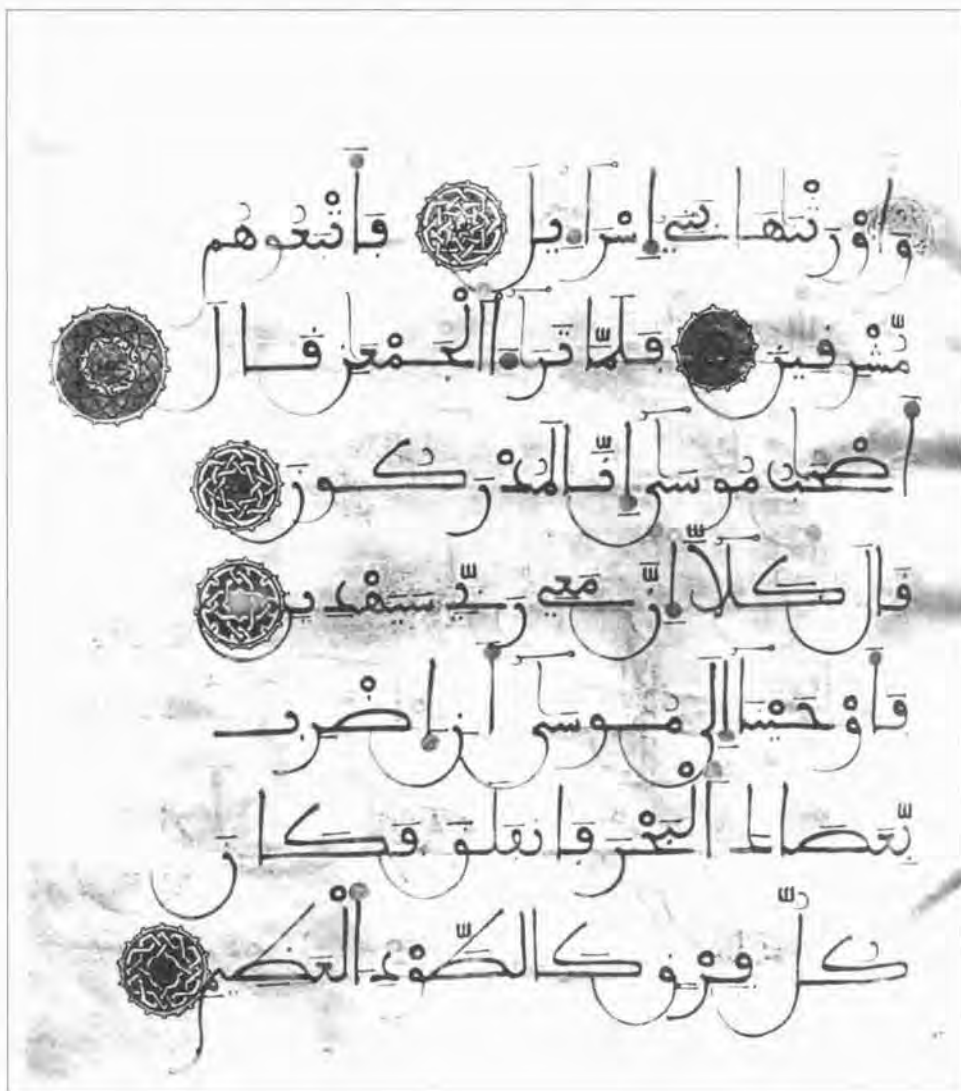 وَأَوْرَثْنَٰهَا بَنِي إِسْرَٰٓءِيلَ فَأَتْبَعُوهُم
مُّشْرِقِينَ فَلَمَّا تَرَٰٓءَا ٱلْجَمْعَٰنِ قَالَ
أَصْحَٰبُ مُوسَىٰ إِنَّا لَمُدْرَكُونَ
قَالَ كَلَّا إِنَّ مَعِي رَبِّي سَيَهْدِينِ
فَأَوْحَيْنَا إِلَىٰ مُوسَىٰ أَنِ ٱضْرِب
بِّعَصَاكَ ٱلْبَحْرَ فَٱنفَلَقَ فَكَانَ
كُلُّ فِرْقٍ كَٱلطَّوْدِ ٱلْعَظِيمِ